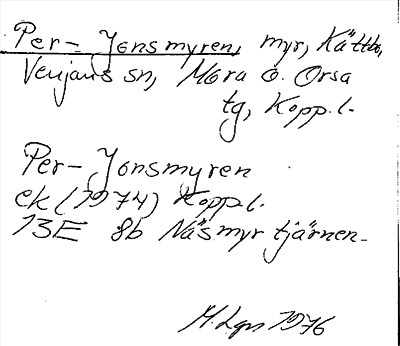 Per-Jonsmyren, myr, Kättbo,
Venjans sn, Mora o. Orsa
tg, Kopp.l.
Per-Jonsmyren
ek (1974) Kopp.l.
13E 8b Näsmyrtjärnen.
M. Lgn 1976